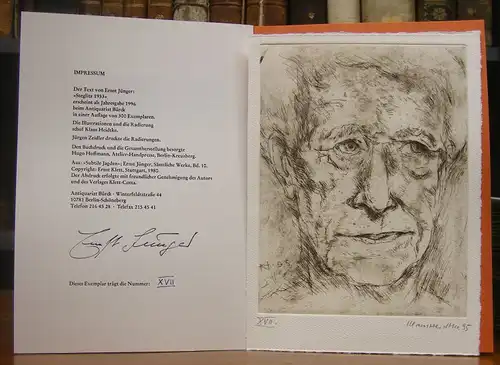 IMPRESSUM
Der Text von Ernst Jünger:
»Steglitz 1933«
erscheint als Jahresgabe 1996
beim Antiquariat Bürck
in einer Auflage von 300 Exemplaren.
Die Illustrationen und die Radierung
schuf Klaus Heidtke.
Jürgen Zeidler druckte die Radierungen.
Den Buchdruck und die Gesamtherstellung besorgte
Hugo Hoffmann, Atelier-Handpresse, Berlin-Kreuzberg.
Aus: »Subtile Jagden«; Ernst Jünger, Sämtliche Werke, Bd. 10.
Copyright: Ernst Klett, Stuttgart, 1980.
Der Abdruck erfolgte mit freundlicher Genehmigung des Autors
und des Verlages Klett-Cotta.
Antiquariat Bürck · Winterfeldtstraße 44
10781 Berlin-Schöneberg
Telefon 216 45 28 · Telefax 215 43 41
Ernst Jünger
Dieses Exemplar trägt die Nummer: XVII
XVII
95